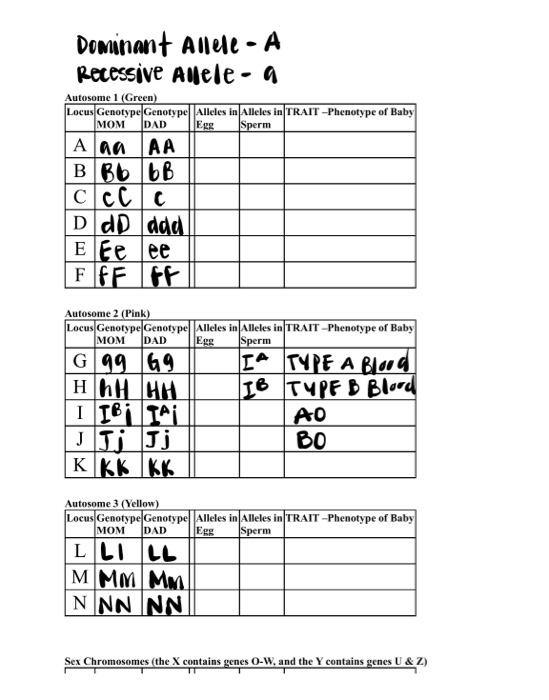 Dominant Allele - A
Recessive Allele - a
Autosome 1 (Green)
Locus Genotype MOM Genotype DAD Alleles in Egg Alleles in Sperm TRAIT –Phenotype of Baby
A aa AA
B Bb bB
C cC c
D dD ddd
E Ee ee
F fF ff
Autosome 2 (Pink)
Locus Genotype MOM Genotype DAD Alleles in Egg Alleles in Sperm TRAIT –Phenotype of Baby
G gg Gg IA TYPE A Blood
H hH HH IB TYPE B Blood
I IBi IAi AO
J Jj Jj BO
K KK KK
Autosome 3 (Yellow)
Locus Genotype MOM Genotype DAD Alleles in Egg Alleles in Sperm TRAIT –Phenotype of Baby
L Ll LL
M Mm Mm
N NN NN
Sex Chromosomes (the X contains genes O-W, and the Y contains genes U & Z)